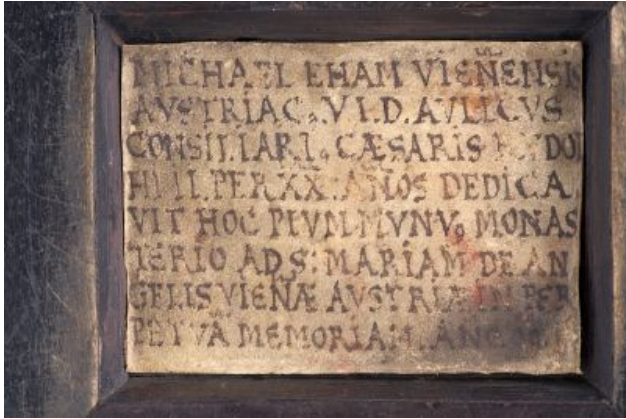 MICHAEL EHAM VIEÑENSIS
AVSTRIAC9. V I. D. AVLICVS
CONSILIARI9. CÆSARIS
PER XX. AÑOS DEDICA
VIT HOC PIVM MVNV9 MONAS
TERIO AD S: MARIAM DE AN
GELIS VIEÑÆ AVSTRIÆ IN PER
PETVA MEMORIAM.